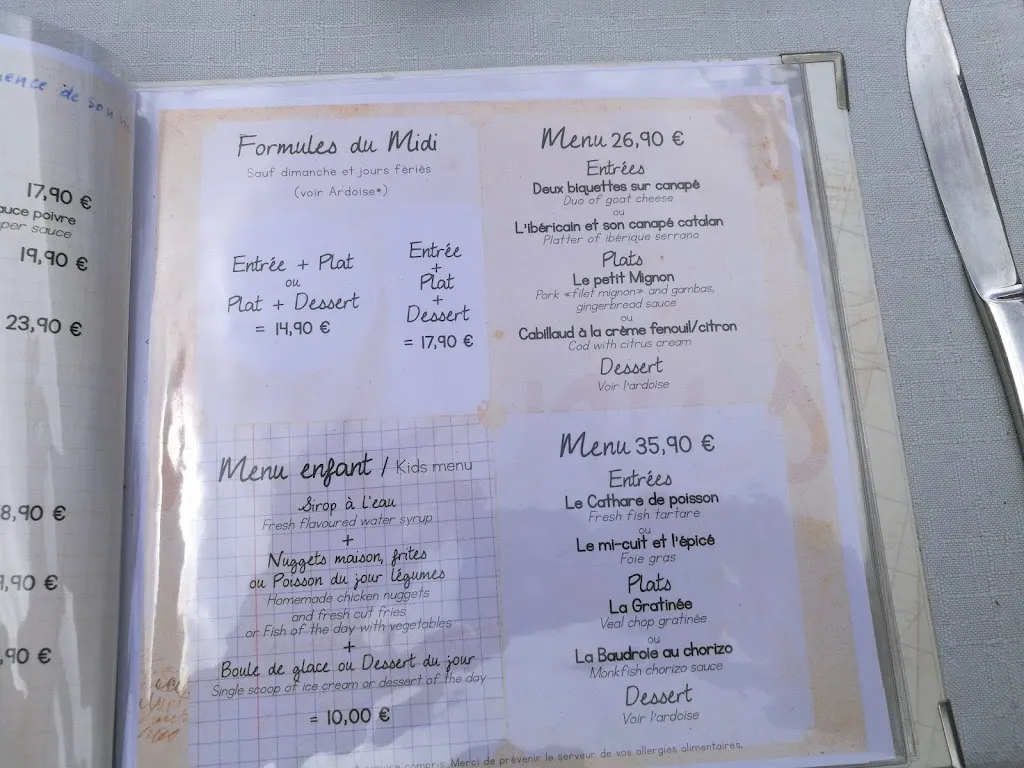 ence de son
17,90 €
auce poivre
per sauce
19,90 €
23,90 €
8,90 €
,90 €
,90 €
Formules du Midi
Sauf dimanche et jours fériés
(voir Ardoise*)
Entrée + Plat
ou
Plat + Dessert
= 14,90 €
Entrée
+
Plat
+
Dessert
= 17,90 €
Menu 26,90 €
Entrées
Deux biquettes sur canapé
Duo of goat cheese
ou
L'ibéricain et son canapé catalan
Platter of ibérique serrano
Plats
Le petit Mignon
Pork «filet mignon» and gambas,
gingerbread sauce
ou
Cabillaud à la crème fenouil/citron
Cod with citrus cream
Dessert
Voir l'ardoise
Menu enfant / Kids menu
Sirop à l'eau
Fresh flavoured water syrup
+
Nuggets maison, frites
ou Poisson du jour légumes
Homemade chicken nuggets
and fresh cut fries
or Fish of the day with vegetables
+
Boule de glace ou Dessert du jour
Single scoop of ice cream or dessert of the day
= 10,00 €
Menu 35,90 €
Entrées
Le Cathare de poisson
Fresh fish tartare
ou
Le mi-cuit et l'épicé
Foie gras
Plats
La Gratinée
Veal chop gratinée
ou
La Baudroie au chorizo
Monkfish chorizo sauce
Dessert
Voir l'ardoise
service compris. Merci de prévenir le serveur de vos allergies alimentaires.